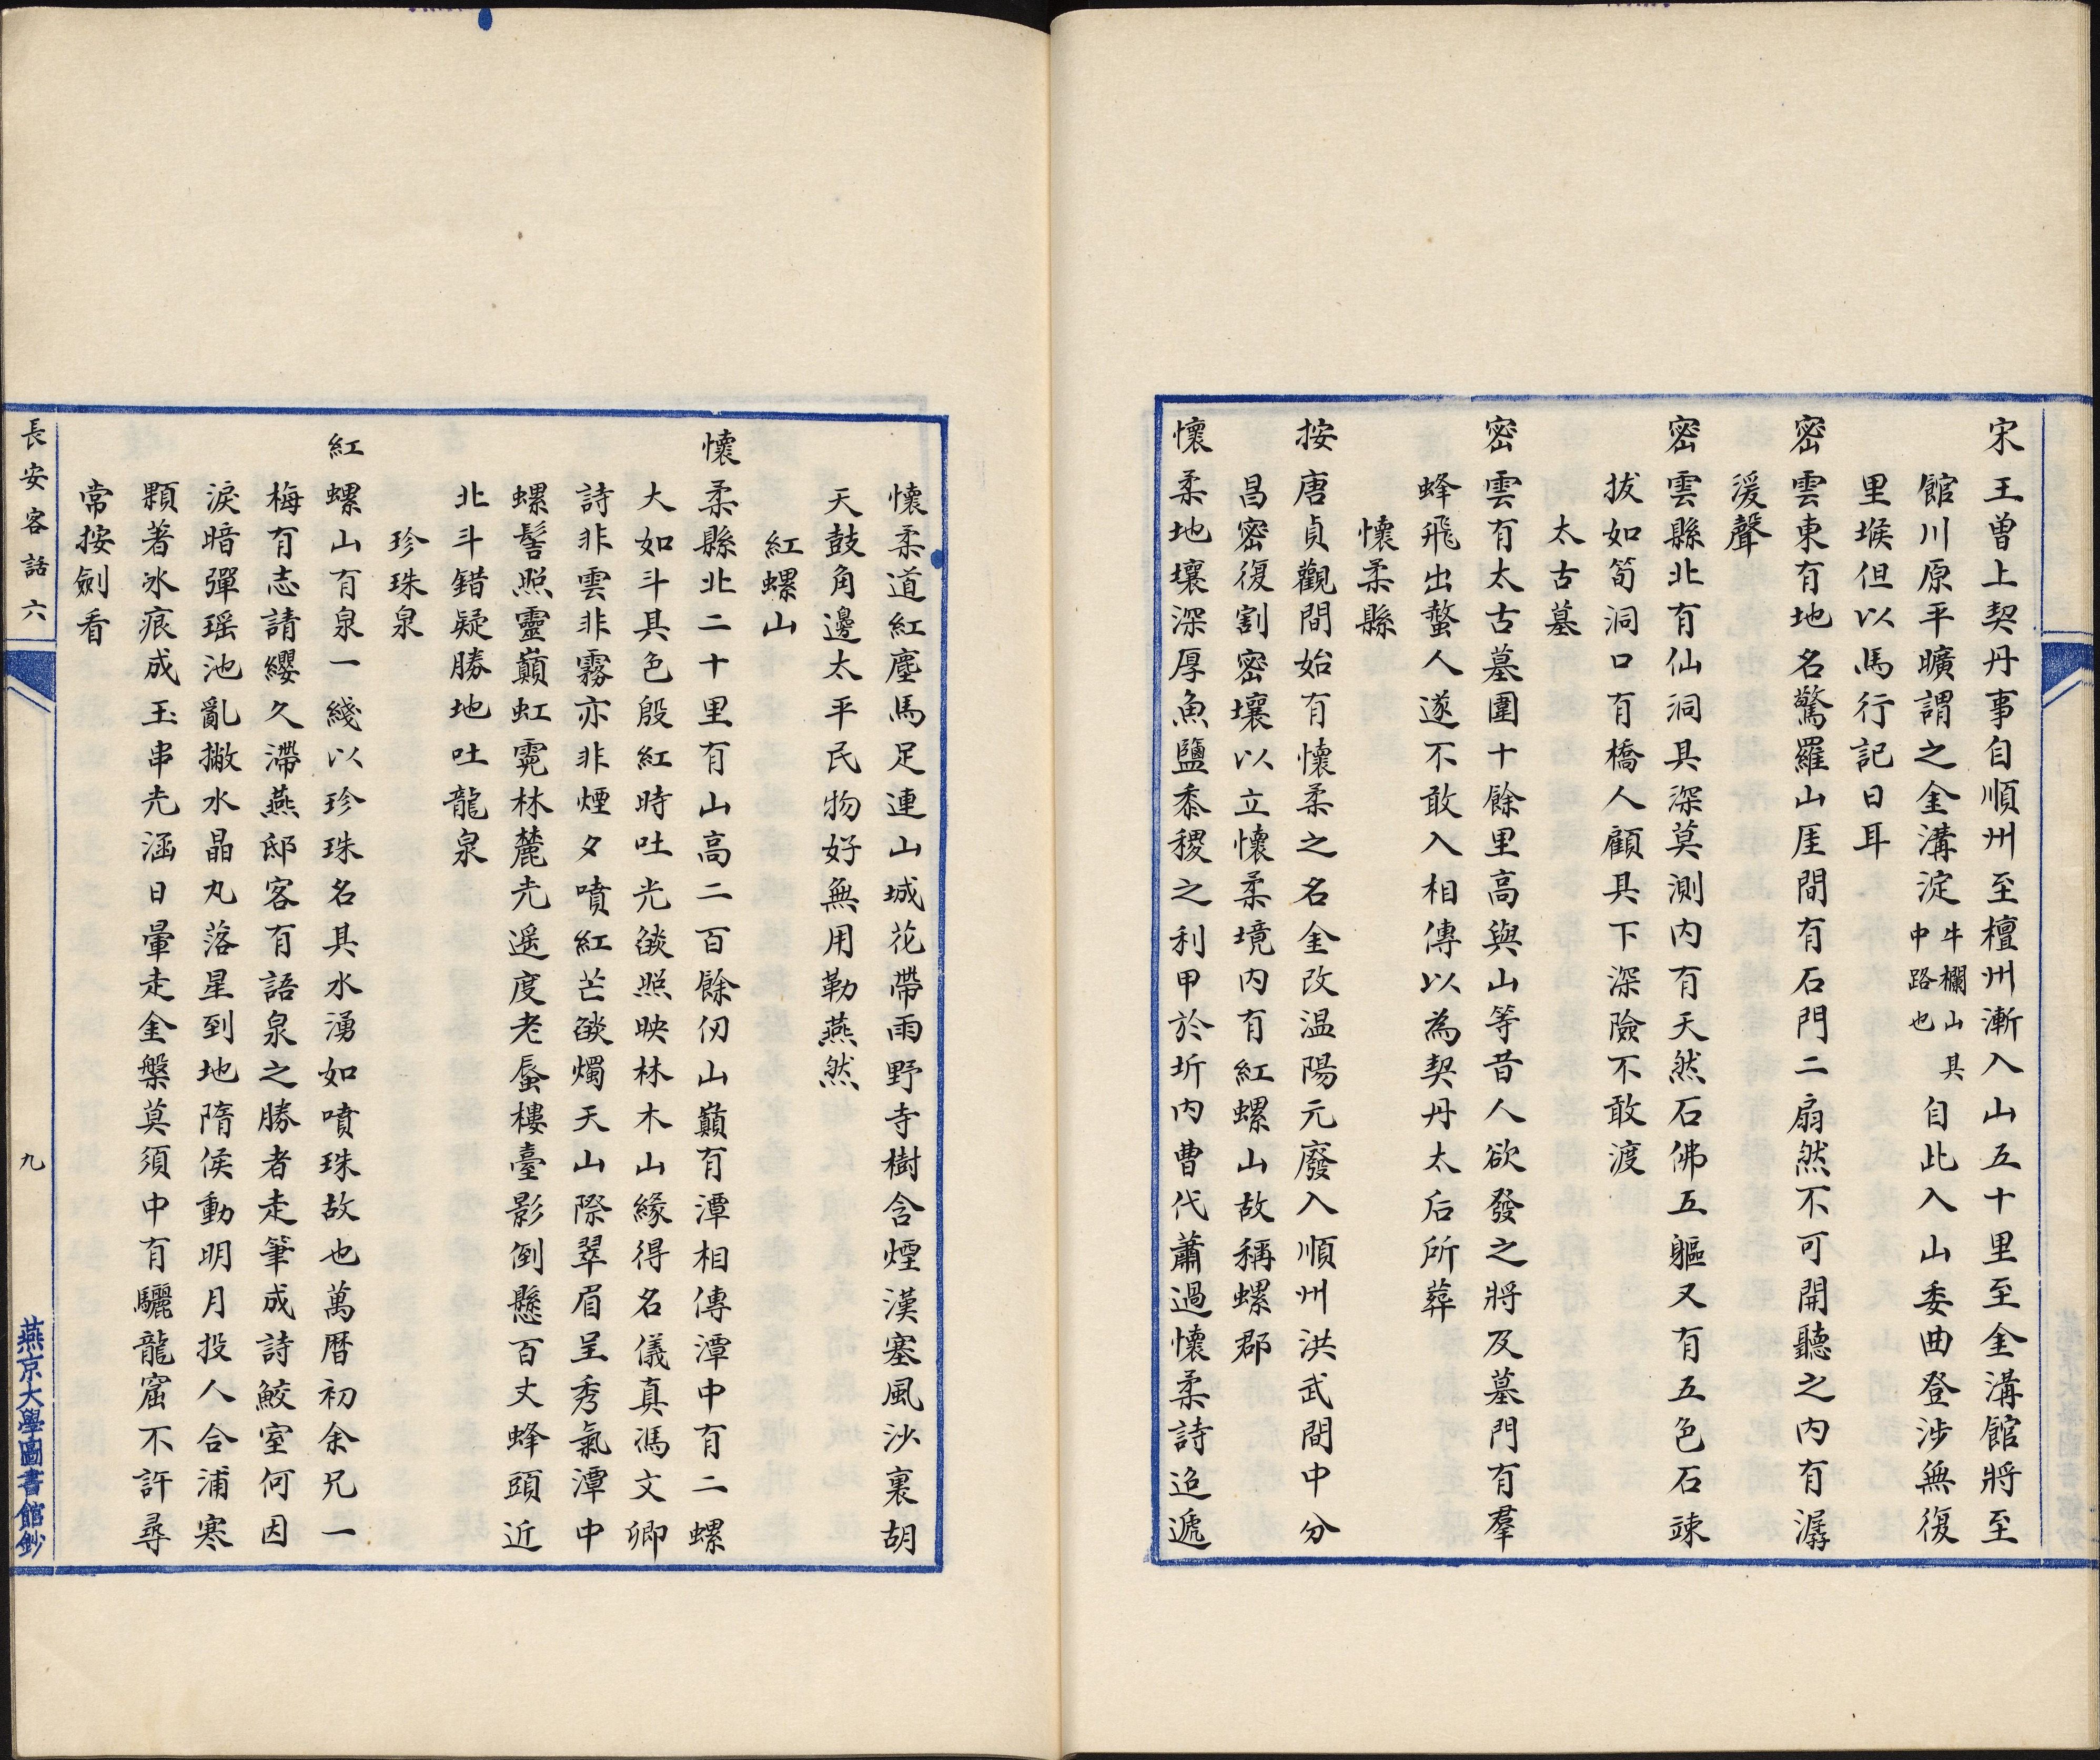 宋王曾上契丹事自順州至檀州漸入山五十里至金溝館將至
館川原平曠謂之金溝淀牛欄山具中路也自此入山委曲登涉無復
里堠但以馬行記日耳
密雲東有地名驚羅山厓間有石門二扇然不可開聽之內有潺
湲聲
密雲縣北有仙洞具深莫測內有天然石佛五軀又有五色石竦
拔如筍洞口有橋人顧具下深險不敢渡
太古墓
密雲有太古墓圍十餘里高與山等昔人欲發之將及墓門有羣
蜂飛出螫人遂不敢入相傳以為契丹太后所葬
懷柔縣
按唐貞觀間始有懷柔之名金改温陽元廢入順州洪武間中分
昌密復割密壤以立懷柔境內有紅螺山故稱螺郡
懷柔地壤深厚魚鹽黍稷之利甲於圻內曹代蕭過懷柔詩迢遞
懷柔道紅塵馬足連山城花帶雨野寺樹含煙漢塞風沙裏胡
天鼓角邊太平民物好無用勒燕然
紅螺山
懷柔縣北二十里有山高二百餘仞山巔有潭相傳潭中有二螺
大如斗具色殷紅時吐光燄照映林木山緣得名儀真馮文卿
詩非雲非霧亦非煙夕噴紅芒燄燭天山際翠眉呈秀氣潭中
螺髻照靈巔虹霓林麓光遥度老蜃樓臺影倒懸百丈蜂頭近
北斗錯疑勝地吐龍泉
珍珠泉
紅螺山有泉一綫以珍珠名具水湧如噴珠故也萬曆初余兄一
梅有志請纓久滯燕邸客有語泉之勝者走筆成詩鮫室何因
淚暗彈瑶池亂撇水晶丸落星到地隋侯動明月投人合浦寒
顆著冰痕成玉串光涵日暈走金槃莫須中有驪龍窟不許尋
常按劍看
長安客話六
九
燕京大學圖書館鈔